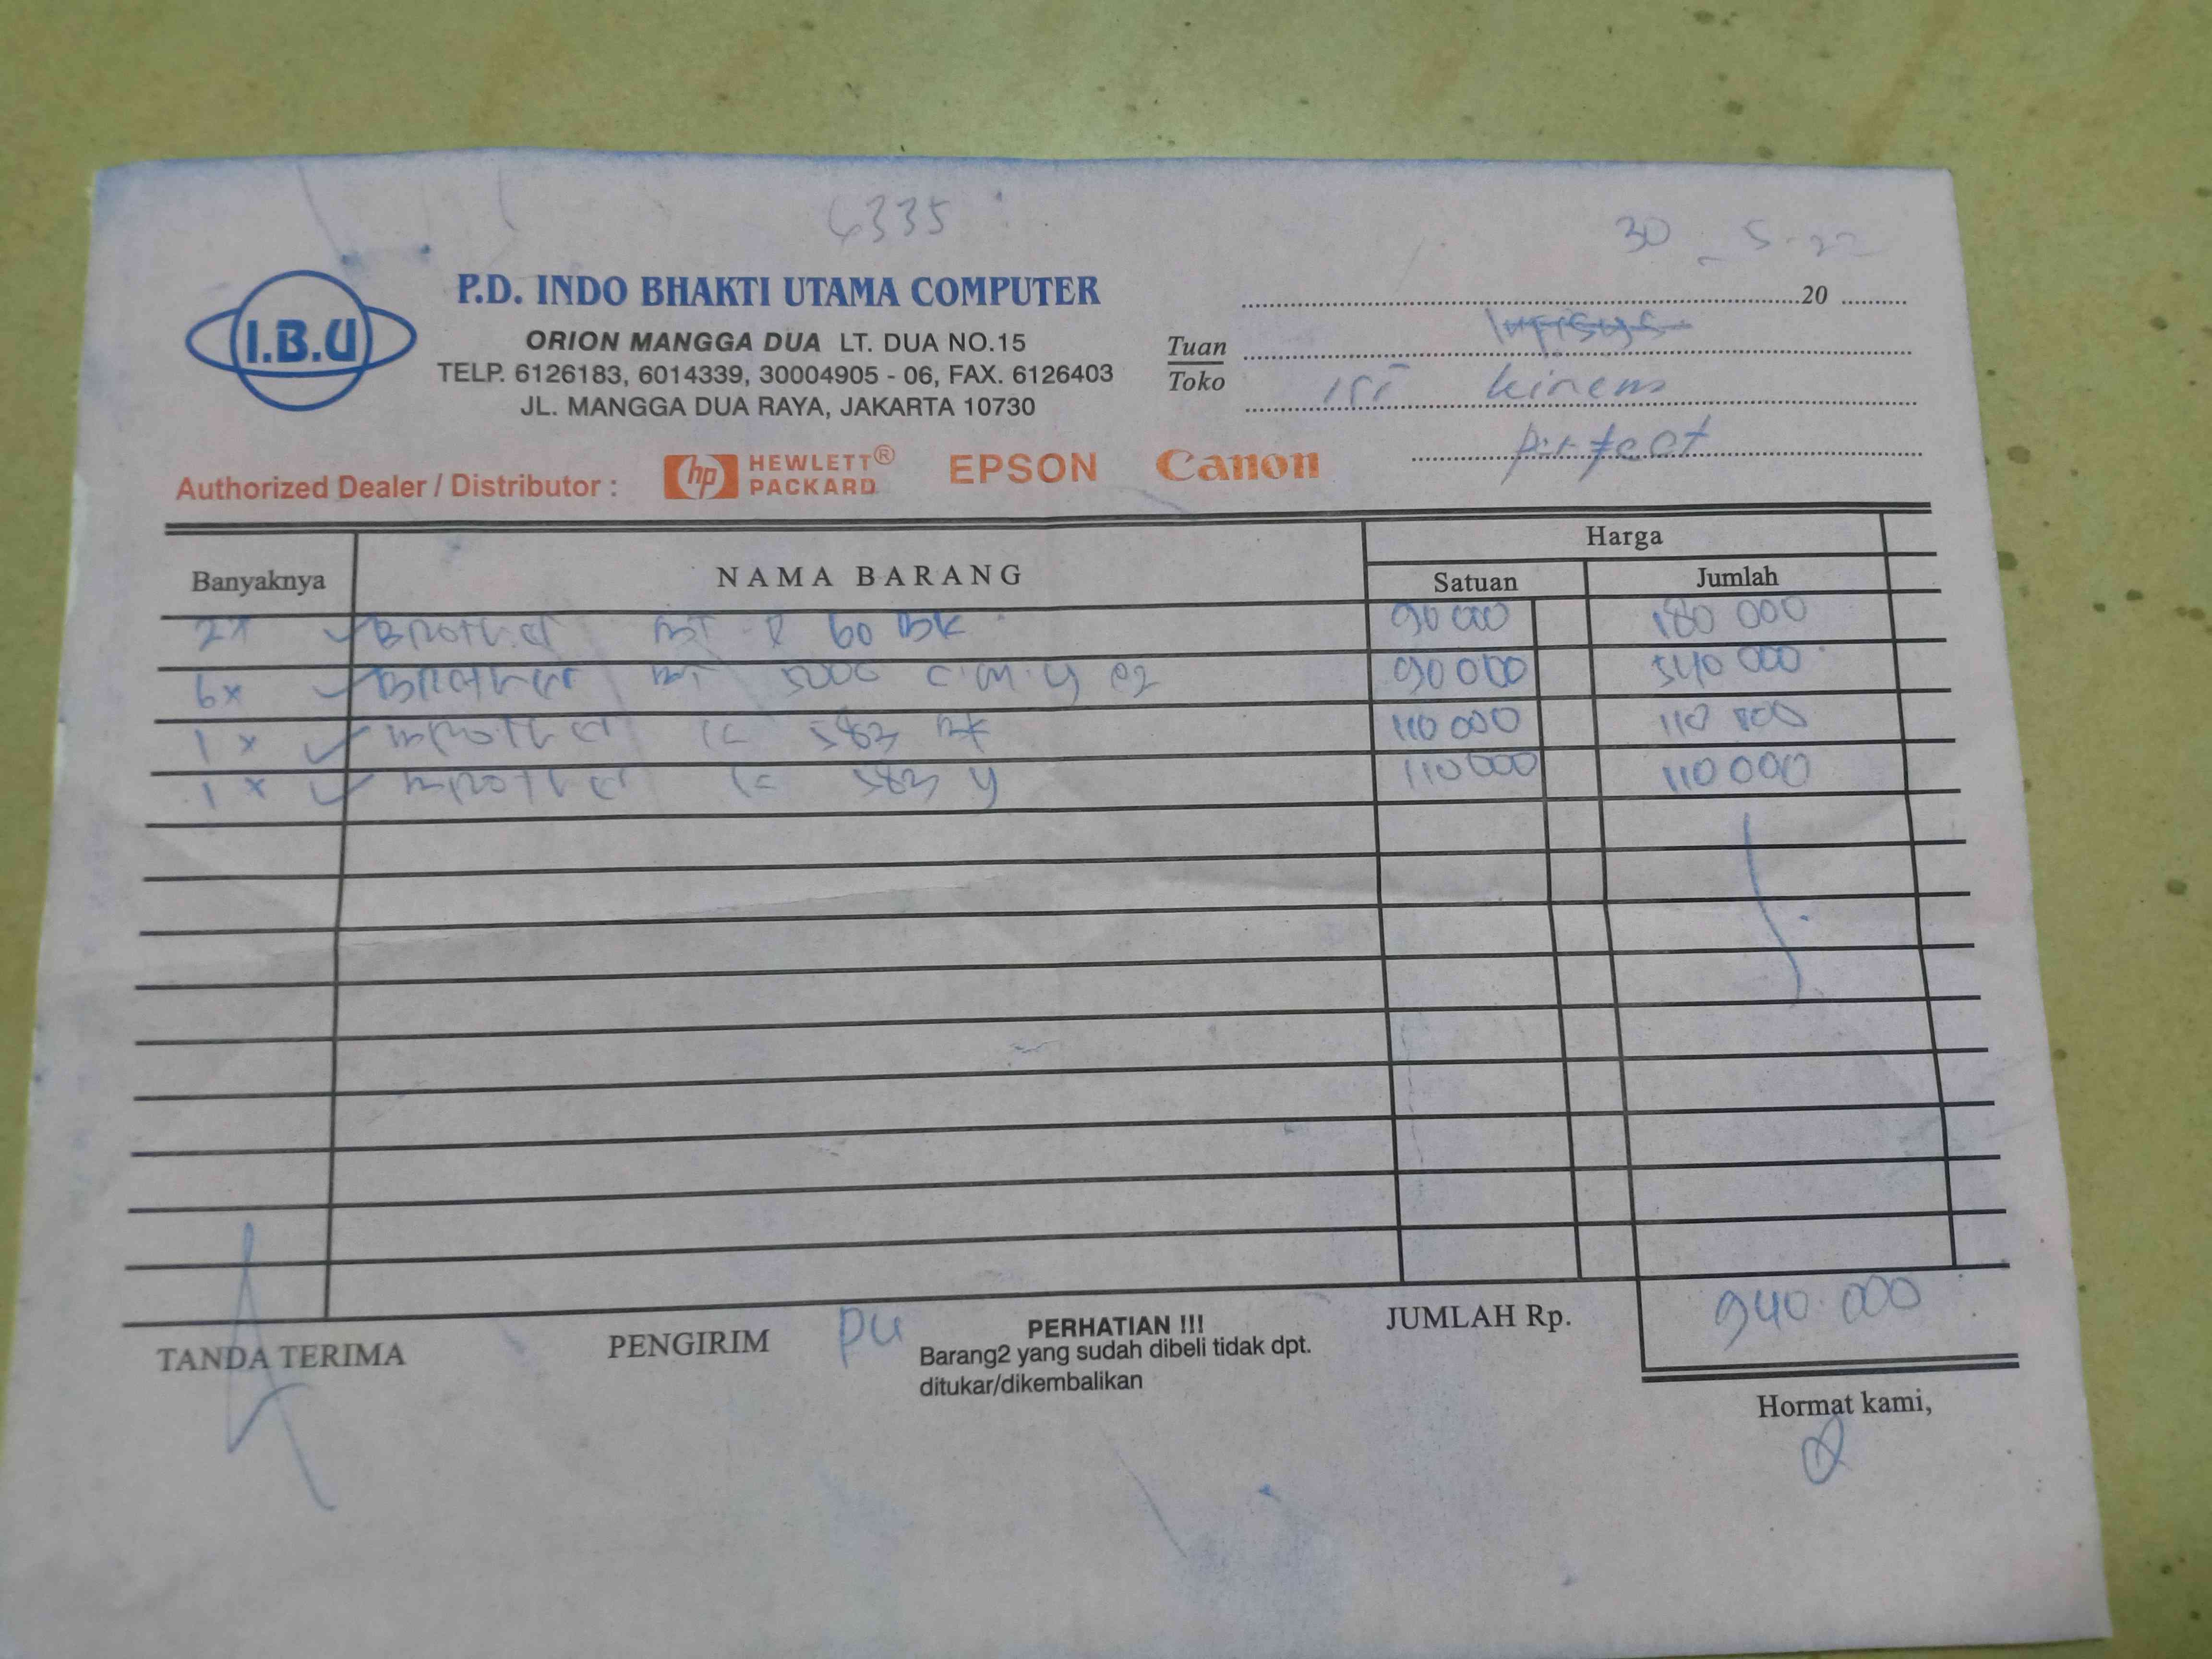 6335
30 - 5-22
I.B.U
P.D. INDO BHAKTI UTAMA COMPUTER
ORION MANGGA DUA LT. DUA NO.15
TELP. 6126183, 6014339, 30004905 - 06, FAX. 6126403
JL. MANGGA DUA RAYA, JAKARTA 10730
20
Tuan
Toko
perfect
Authorized Dealer / Distributor : hp HEWLETT® PACKARD EPSON Canon
Banyaknya NAMA BARANG Harga
Satuan Jumlah
2x Brother BT D 60 BK 90 000 180 000
6x Brother BT 5000 C.M.Y 90 000 540 000
1x Brother LC 583 BK 110 000 110 000
1x Brother LC 583 Y 110 000 110 000
TANDA TERIMA PENGIRIM PU
PERHATIAN !!!
Barang2 yang sudah dibeli tidak dpt.
ditukar/dikembalikan
JUMLAH Rp. 940.000
Hormat kami,